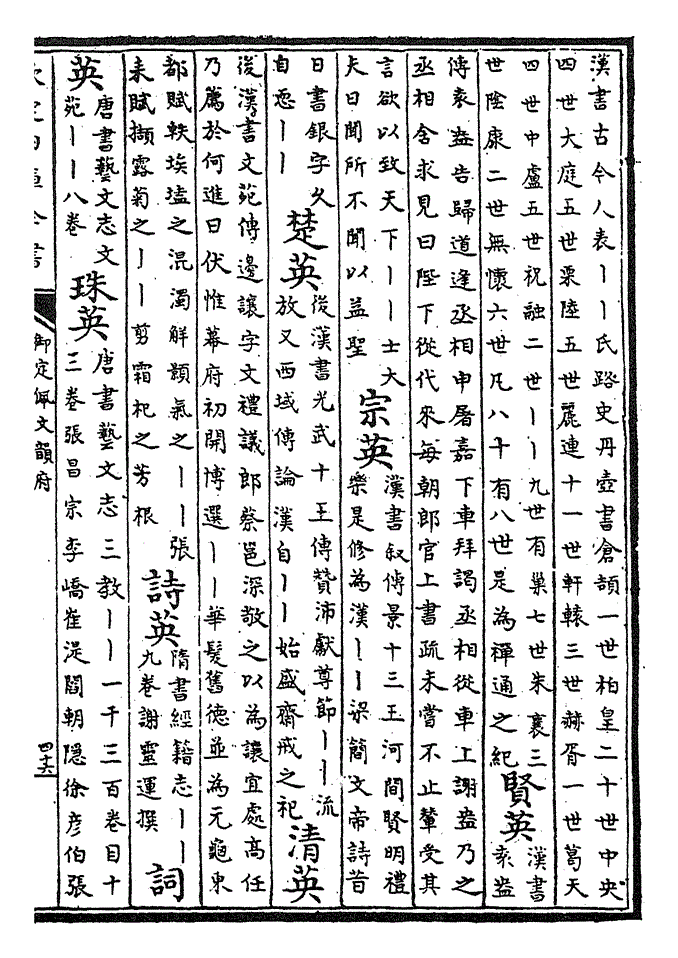 漢書古今人表丨丨氏路史丹壺書倉頡一世柏皇二十世中央
四世大庭五世栗陸五世麗連十一世軒轅三世赫胥一世葛天
四世中盧五世祝融二世丨丨九世有巢七世朱襄三
世陰康二世無懷六世凡八十有八世是為禪通之紀
賢英
漢書
袁盎
傳袁盎告歸道逢丞相申屠嘉下車拜謁丞相從車上謝盎乃之
丞相舍求見曰陛下從代來每朝郎官上書疏未嘗不止輦受其
言欲以致天下丨丨士大
夫日聞所不聞以益聖
宗英
漢書叙傳景十三王河間賢明禮
樂是修為漢丨丨梁簡文帝詩昔
日書銀字久
自恧丨丨
楚英
後漢書光武十王傳贊沛獻尊節丨丨流
放又西域傳論漢自丨丨始盛齋戒之祀
清英
後漢書文苑傳邊讓字文禮議郎蔡邕深敬之以為讓宜處高任
乃薦於何進曰伏惟幕府初開博選丨丨華髮舊德並為元龜東
都賦軼埃壒之混濁鮮顥氣之丨丨張
耒賦擷露菊之丨丨剪霜杞之芳根
詩英
隋書經籍志丨丨
九卷謝靈運撰
詞
英
唐書藝文志文
苑丨丨八卷
珠英
唐書藝文志三教丨丨一千三百卷目十
三卷張昌宗李嶠崔湜閻朝隱徐彥伯張
欽定四庫全書
御定佩文韻府
四十六